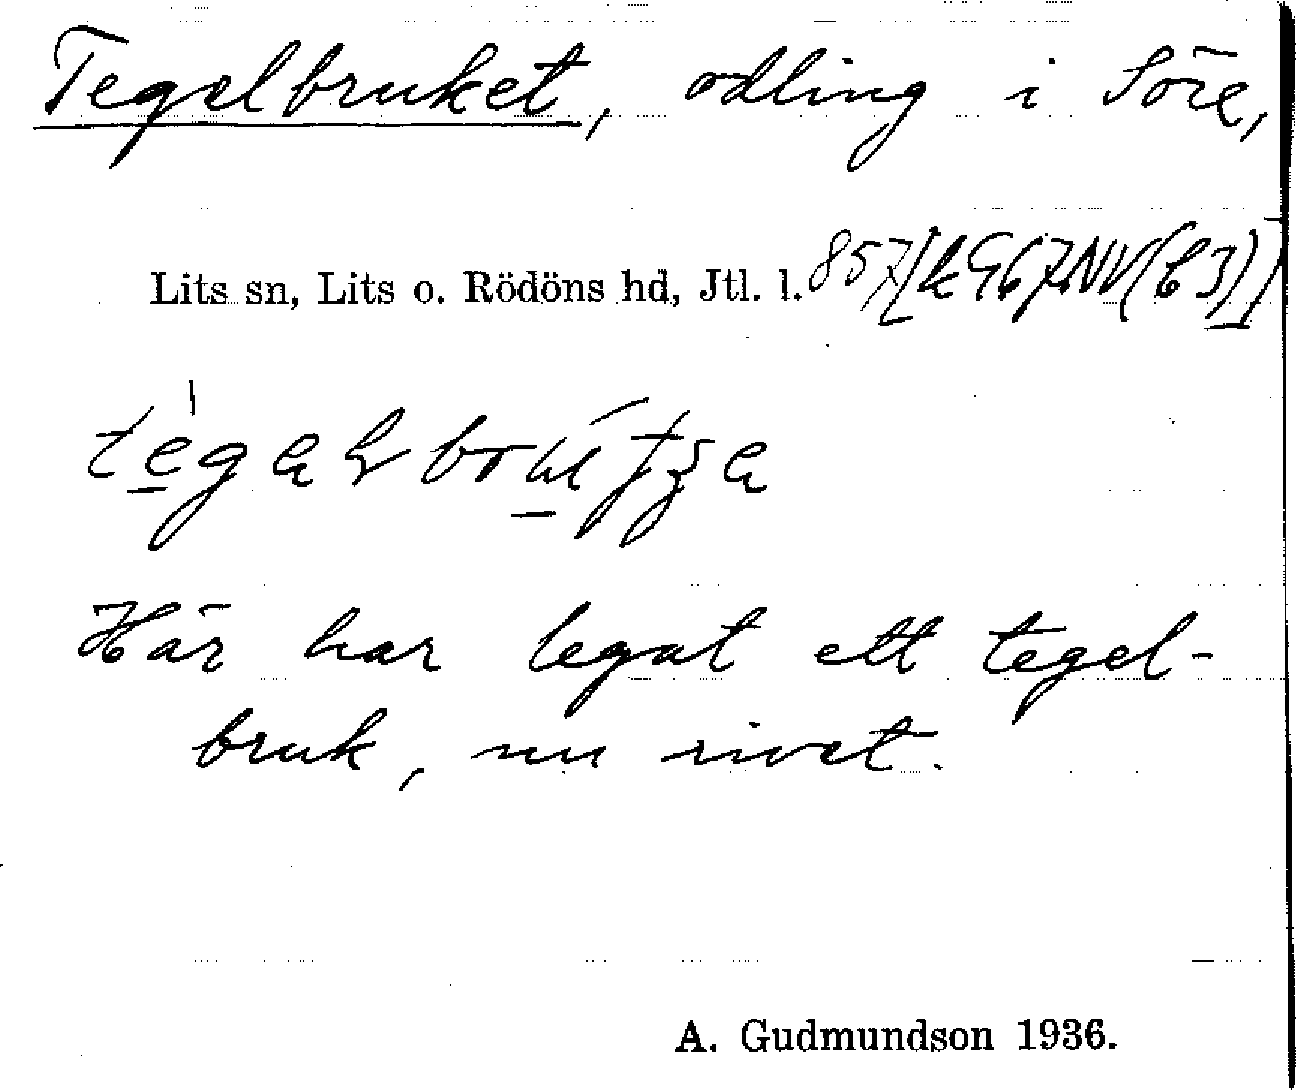 Tegelbruket, odling i Söre,
Lits sn, Lits o. Rödöns hd, Jtl. l. 857
Här har legat ett tegel-
bruk, nu rivet.
A. Gudmundson 1936.